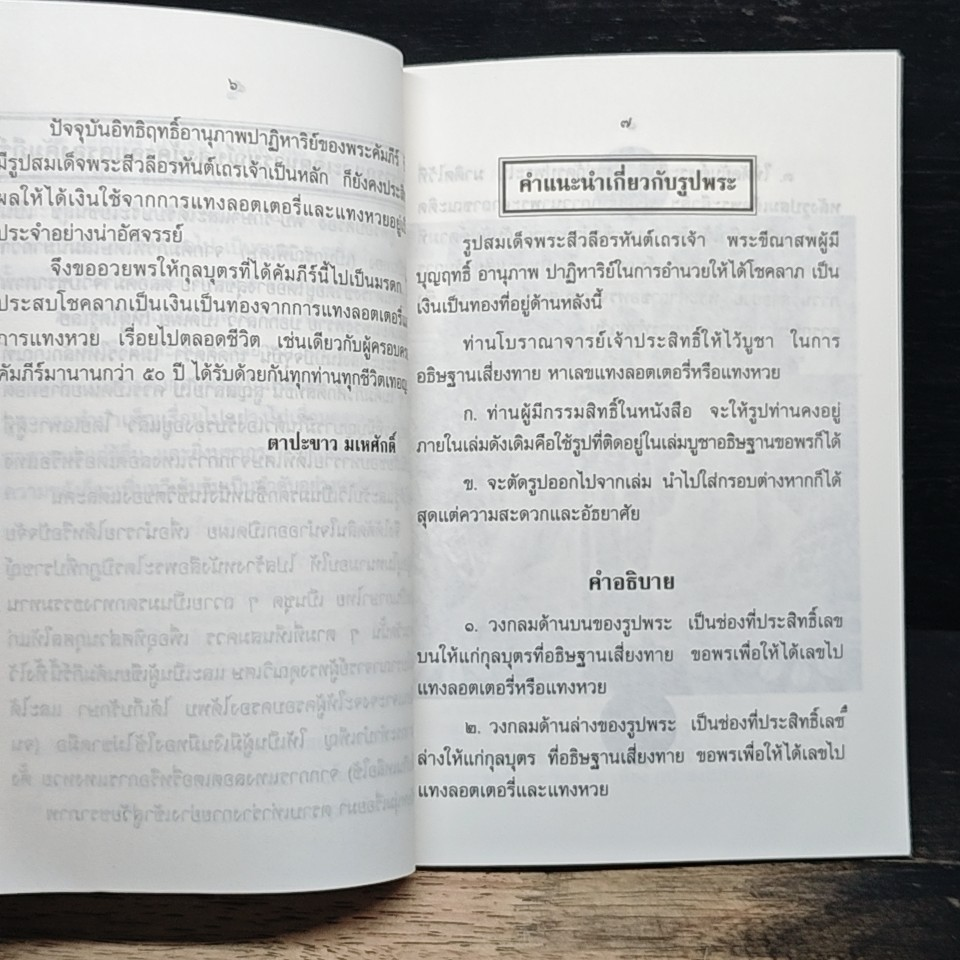 ๖
ปัจจุบันอิทธิฤทธิ์อานุภาพปาฏิหาริย์ของพระคัมภีร์
มีรูปสมเด็จพระสีวลีอรหันต์เถรเจ้าเป็นหลัก ก็ยังคงประสิ
ผลให้ได้เงินใช้จากการแทงลอตเตอรี่และแทงหวยอยู่เ
ประจำอย่างน่าอัศจรรย์
จึงขออวยพรให้กุลบุตรที่ได้คัมภีร์นี้ไปเป็นมรดก
ประสบโชคลาภเป็นเงินเป็นทองจากการแทงลอตเตอรี่แ
การแทงหวย เรื่อยไปตลอดชีวิต เช่นเดียวกับผู้ครอบคร
คัมภีร์มานานกว่า ๕๐ ปี ได้รับด้วยกันทุกท่านทุกชีวิตเทอญ
ตาปะขาว มเหศักดิ์
๗
คำแนะนำเกี่ยวกับรูปพระ
รูปสมเด็จพระสีวลีอรหันต์เถรเจ้า พระขีณาสพผู้มี
บุญฤทธิ์ อานุภาพ ปาฏิหาริย์ในการอำนวยให้ได้โชคลาภ เป็น
เงินเป็นทองที่อยู่ด้านหลังนี้
ท่านโบราณาจารย์เจ้าประสิทธิ์ให้ไว้บูชา ในการ
อธิษฐานเสี่ยงทาย หาเลขแทงลอตเตอรี่หรือแทงหวย
ก. ท่านผู้มีกรรมสิทธิ์ในหนังสือ จะให้รูปท่านคงอยู่
ภายในเล่มดังเดิมคือใช้รูปที่ติดอยู่ในเล่มบูชาอธิษฐานขอพรก็ได้
ข. จะตัดรูปออกไปจากเล่ม นำไปใส่กรอบต่างหากก็ได้
สุดแต่ความสะดวกและอัธยาศัย
คำอธิบาย
๑. วงกลมด้านบนของรูปพระ เป็นช่องที่ประสิทธิ์เลข
บนให้แก่กุลบุตรที่อธิษฐานเสี่ยงทาย ขอพรเพื่อให้ได้เลขไป
แทงลอตเตอรี่หรือแทงหวย
๒. วงกลมด้านล่างของรูปพระ เป็นช่องที่ประสิทธิ์เลข
ล่างให้แก่กุลบุตร ที่อธิษฐานเสี่ยงทาย ขอพรเพื่อให้ได้เลขไป
แทงลอตเตอรี่และแทงหวย